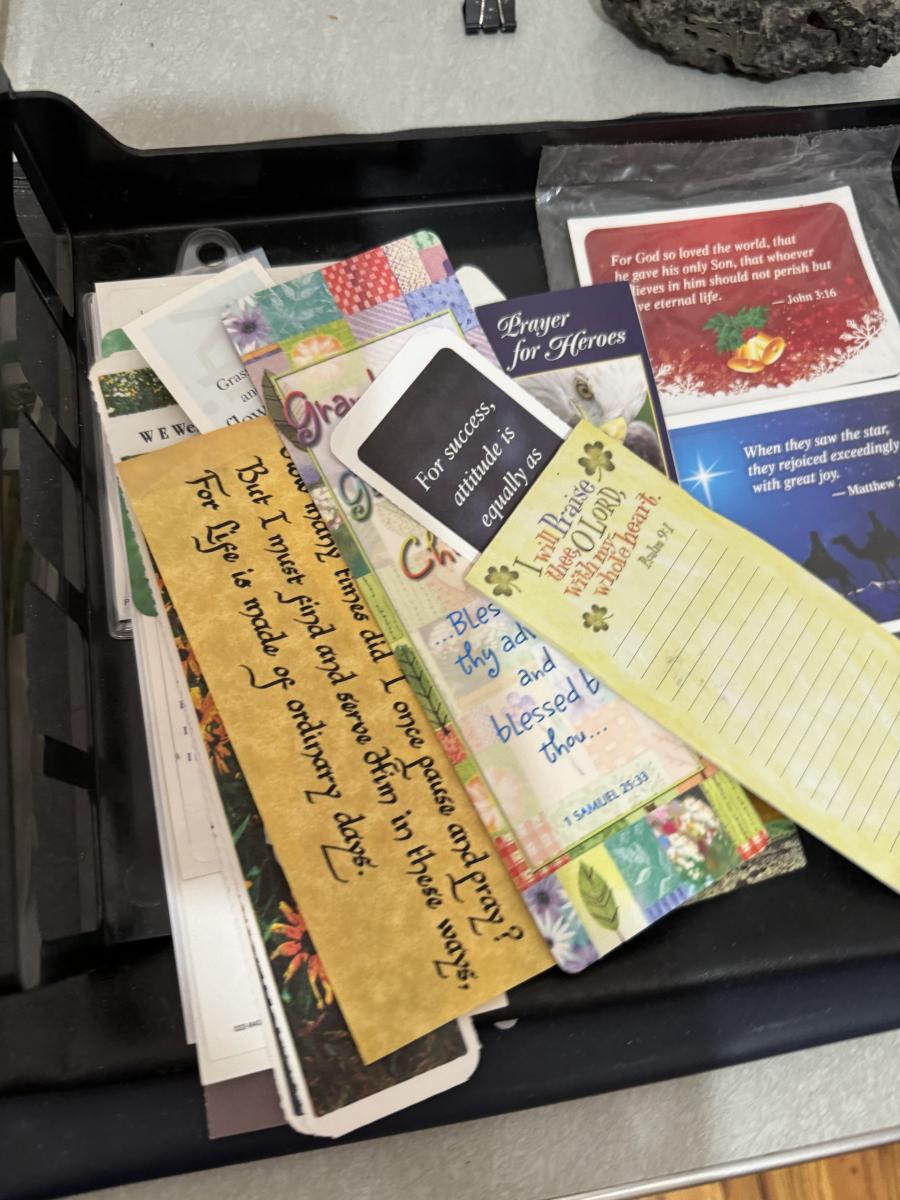 For God so loved the world, that
he gave his only Son, that whoever
in him should not perish but
eternal life.
— John 3:16
When they saw the star,
they rejoiced exceedingly
with great joy.
— Matthew
Prayer
for Heroes
For success,
attitude is
equally as
I will Praise
thee, O LORD,
with my
whole heart.
Psalm 9:1
...Bles
thy
and
blessed b
thou...
1 SAMUEL 25:33
many times did I once pause and pray?
But I must find and serve Him in these ways,
For Life is made of ordinary days.
WE We